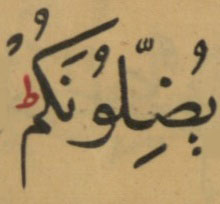 يُضِلُّونَكُمْ ط